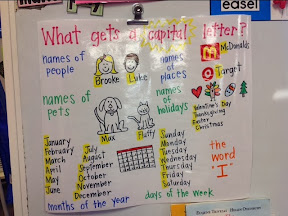 easel
What gets a capital letter?
names of people
Brooke
Luke
names of places
McDonalds
Target
names of pets
Max
Fluffy
names of holidays
Valentine's Day
Thanksgiving
Easter
Christmas
January
February
March
April
May
June
July
August
September
October
November
December
months of the year
Sunday
Monday
Tuesday
Wednesday
Thursday
Friday
Saturday
days of the week
the word "I"